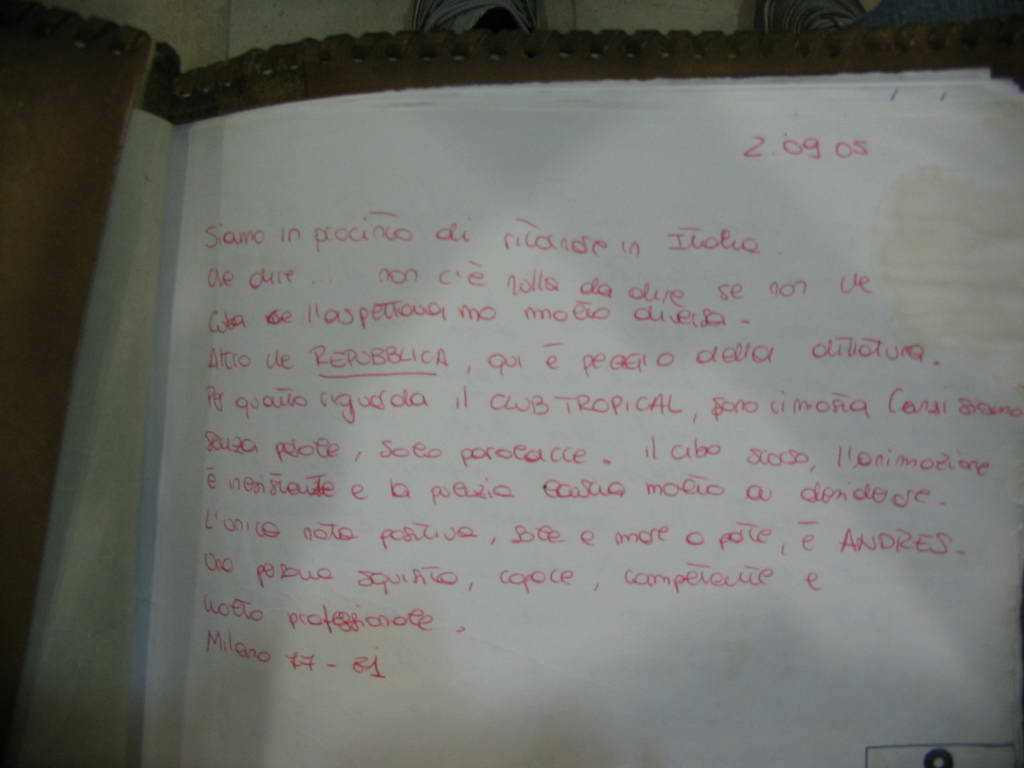 2.09 05
Siamo in procinto di ritornare in Italia
che dire... non c'è nulla da dire se non che
Cuba ce l'aspettavamo molto diversa.
Altro che REPUBBLICA, qui è peggio della dittatura.
Per quanto riguarda il CLUB TROPICAL, sono rimasta (anzi siamo
senza parole, solo parolacce. il cibo scarso, l'animazione
è inesistente e la pulizia lascia molto a desiderare.
L'unica nota positiva, sole e mare a parte, è ANDRES.
Una persona squisita, capace, competente e
molto professionale.
Milano 77 - 81
9